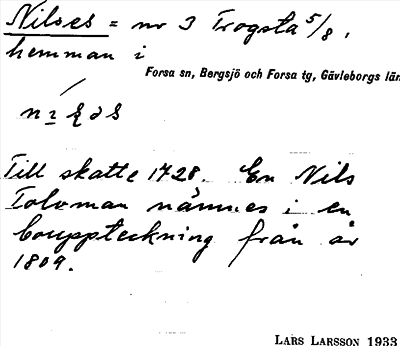 Nilses = nr 3 Trogsta 5/8,
hemman i
Forsa sn, Bergsjö och Forsa tg, Gävleborgs län
Till skatte 1728. En Nils
Tolvman nämnes i en
bouppteckning från år
1809.
LARS LARSSON 1933